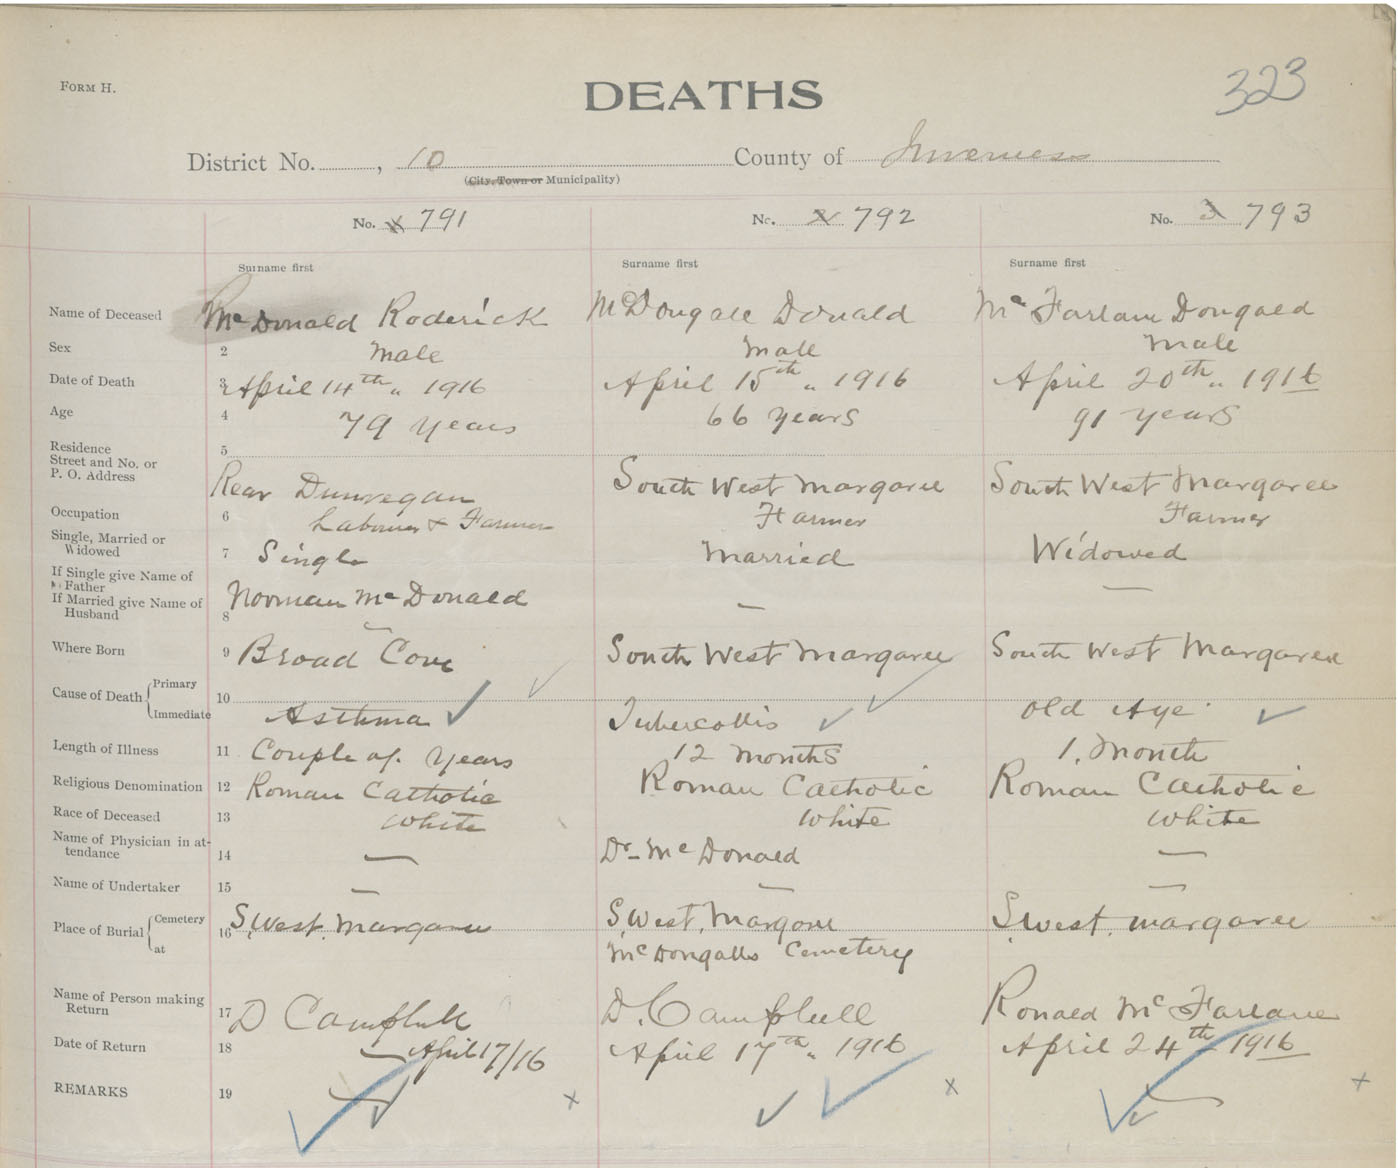 FORM H.
323
DEATHS
District No. , 10 County of Inverness
(City, Town or Municipality)
No. 1 791 No. 2 792 No. 3 793
Surname first Surname first Surname first
Name of Deceased Mc Donald Roderick McDougall Donald Mc Farlane Dougald
Sex 2 Male Male Male
Date of Death 3 April 14th „ 1916 April 15th „ 1916 April 20th „ 1916
Age 4 79 years 66 years 91 years
Residence
Street and No. or
P. O. Address 5 Rear Dunvegan South West Margaree South West Margaree
Occupation 6 Labourer & Farmer Farmer Farmer
Single, Married or
Widowed 7 Single Married Widowed
If Single give Name of
Father
If Married give Name of
Husband 8 Norman Mc Donald — —
Where Born 9 Broad Cove South West Margaree South West Margaree
Cause of Death Primary
Immediate 10 Asthma Tubercollis Old Age
Length of Illness 11 Couple of years 12 months 1. Month
Religious Denomination 12 Roman Catholic Roman Catholic Roman Catholic
Race of Deceased 13 White White White
Name of Physician in at-
tendance 14 — Dr Mc Donald —
Name of Undertaker 15 — — —
Place of Burial Cemetery
at 16 S. West. Margaree S. West. Margaree S. west. margaree
McDougalls Cemetery
Name of Person making
Return 17 D Campbell D. Campbell Ronald McFarlane
Date of Return 18 April 17/16 April 17th „ 1916 April 24th 1916
REMARKS 19 x x x